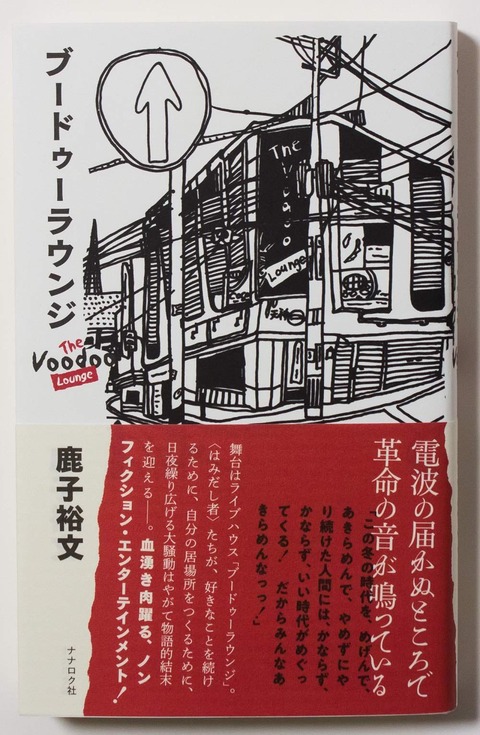 ブードゥーラウンジ
The
Voodoo
Lounge
The
Voodoo
Lounge
鹿子裕文
電波の届かぬところで
革命の音が鳴っている
「この冬の時代を、めげんで、
あきらめんで、やめずにや
り続けた人間には、かならず、
かならず、いい時代がめぐっ
てくる! だからみんなあ
きらめんなっっ!」
舞台はライブハウス「ブードゥーラウンジ」。
〈はみだし者〉たちが、好きなことを続け
るために、自分の居場所をつくるために、
日夜繰り広げる大騒動はやがて物語的結末
を迎える――。血湧き肉躍る、ノン
フィクション・エンターテインメント!
ナナロク社